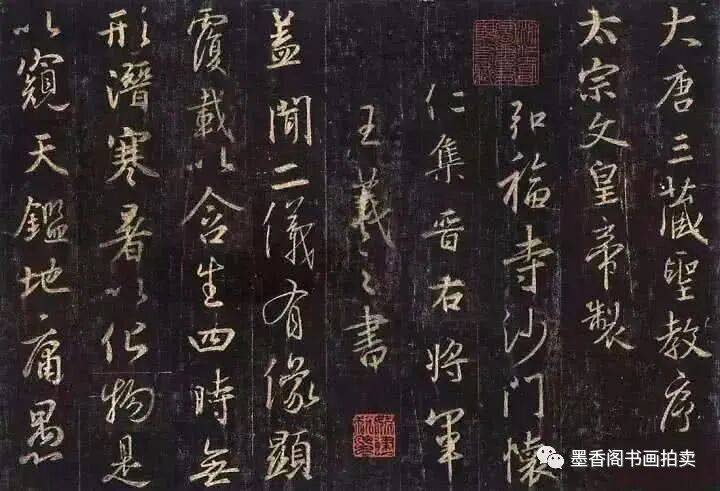 大唐三藏聖教序
太宗文皇帝製
弘福寺沙門懷
仁集晋右將軍
王羲之書
蓋聞二儀有像顯
覆載以含生四時無
形潛寒暑以化物是
以窺天鑑地庸愚
墨香阁书画拍卖